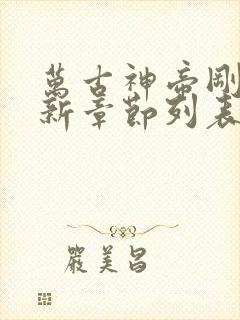 萬古神帝剛
新章節列表
嚴美昌